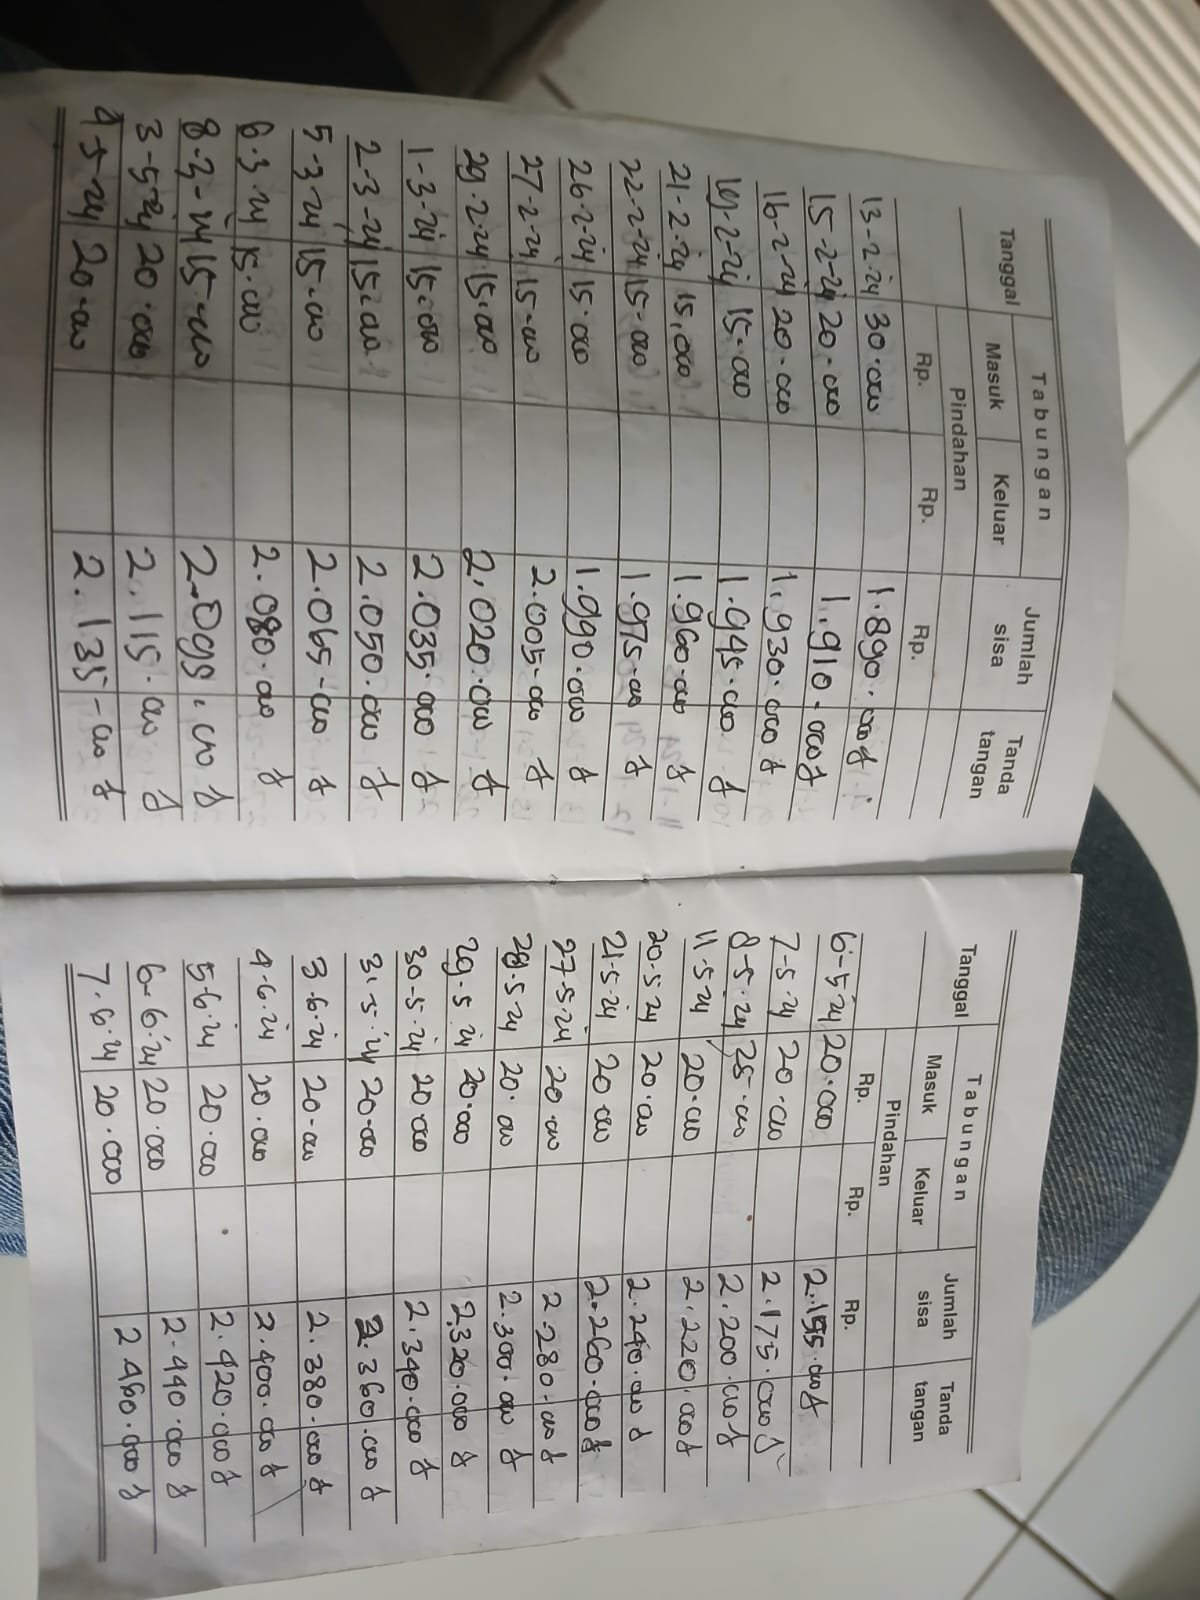 Tanggal Tabungan Jumlah sisa Tanda tangan
Masuk Keluar
Pindahan
Rp. Rp. Rp.
13-2-24 30.000 1.890.000
15-2-24 20.000 1.910.000
16-2-24 20.000 1.930.000
19-2-24 15.000 1.945.000
21-2-24 15.000 1.960.000
22-2-24 15.000 1.975.000
26-2-24 15.000 1.990.000
27-2-24 15.000 2.005.000
29-2-24 15.000 2.020.000
1-3-24 15.000 2.035.000
2-3-24 15.000 2.050.000
5-3-24 15.000 2.065.000
6.3.24 15.000 2.080.000
8-3-24 15.000 2.095.000
3-5-24 20.000 2.115.000
4-5-24 20.000 2.135.000
Tanggal Tabungan Jumlah sisa Tanda tangan
Masuk Keluar
Pindahan
Rp. Rp. Rp.
6-5-24 20.000 2.155.000
7-5-24 20.000 2.175.000
8-5-24 25.000 2.200.000
11.5.24 20.000 2.220.000
20.5.24 20.000 2.240.000
21.5.24 20.000 2.260.000
27-5-24 20.000 2.280.000
28.5.24 20.000 2.300.000
29.5.24 20.000 2.320.000
30-5-24 20.000 2.340.000
31.5.24 20.000 2.360.000
3.6.24 20.000 2.380.000
4-6.24 20.000 2.400.000
5-6.24 20.000 2.420.000
6-6.24 20.000 2.440.000
7.6.24 20.000 2460.000